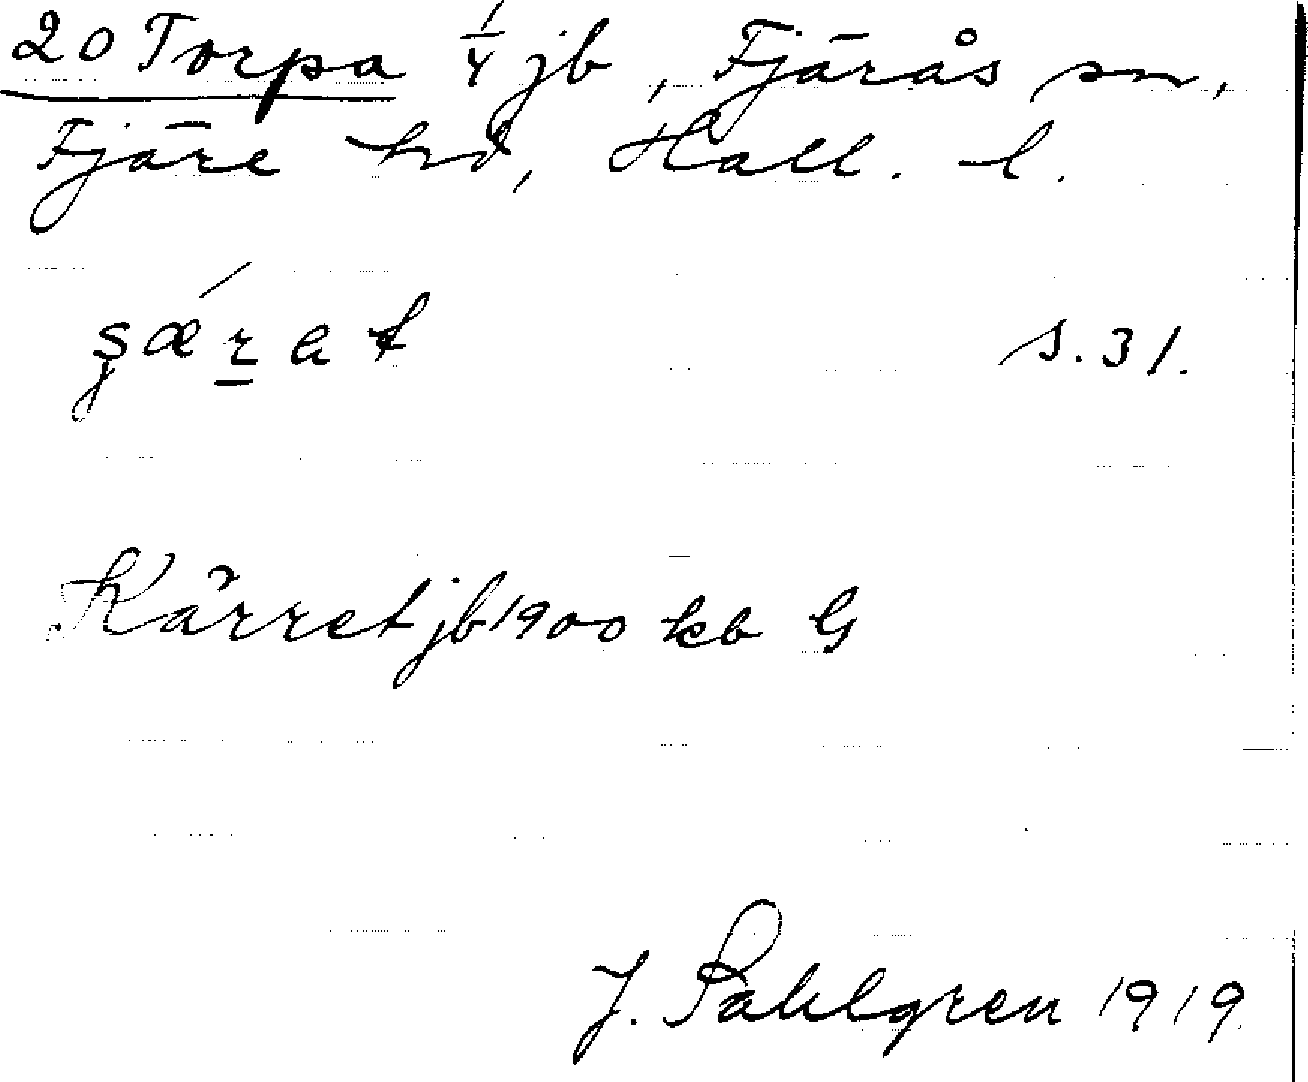 20 Torpa 1/4 jb, Fjärås sn,
Fjäre hd, Hall. l.
s. 31.
Kärret jb 1900 kb G
J. Sahlgren 1919